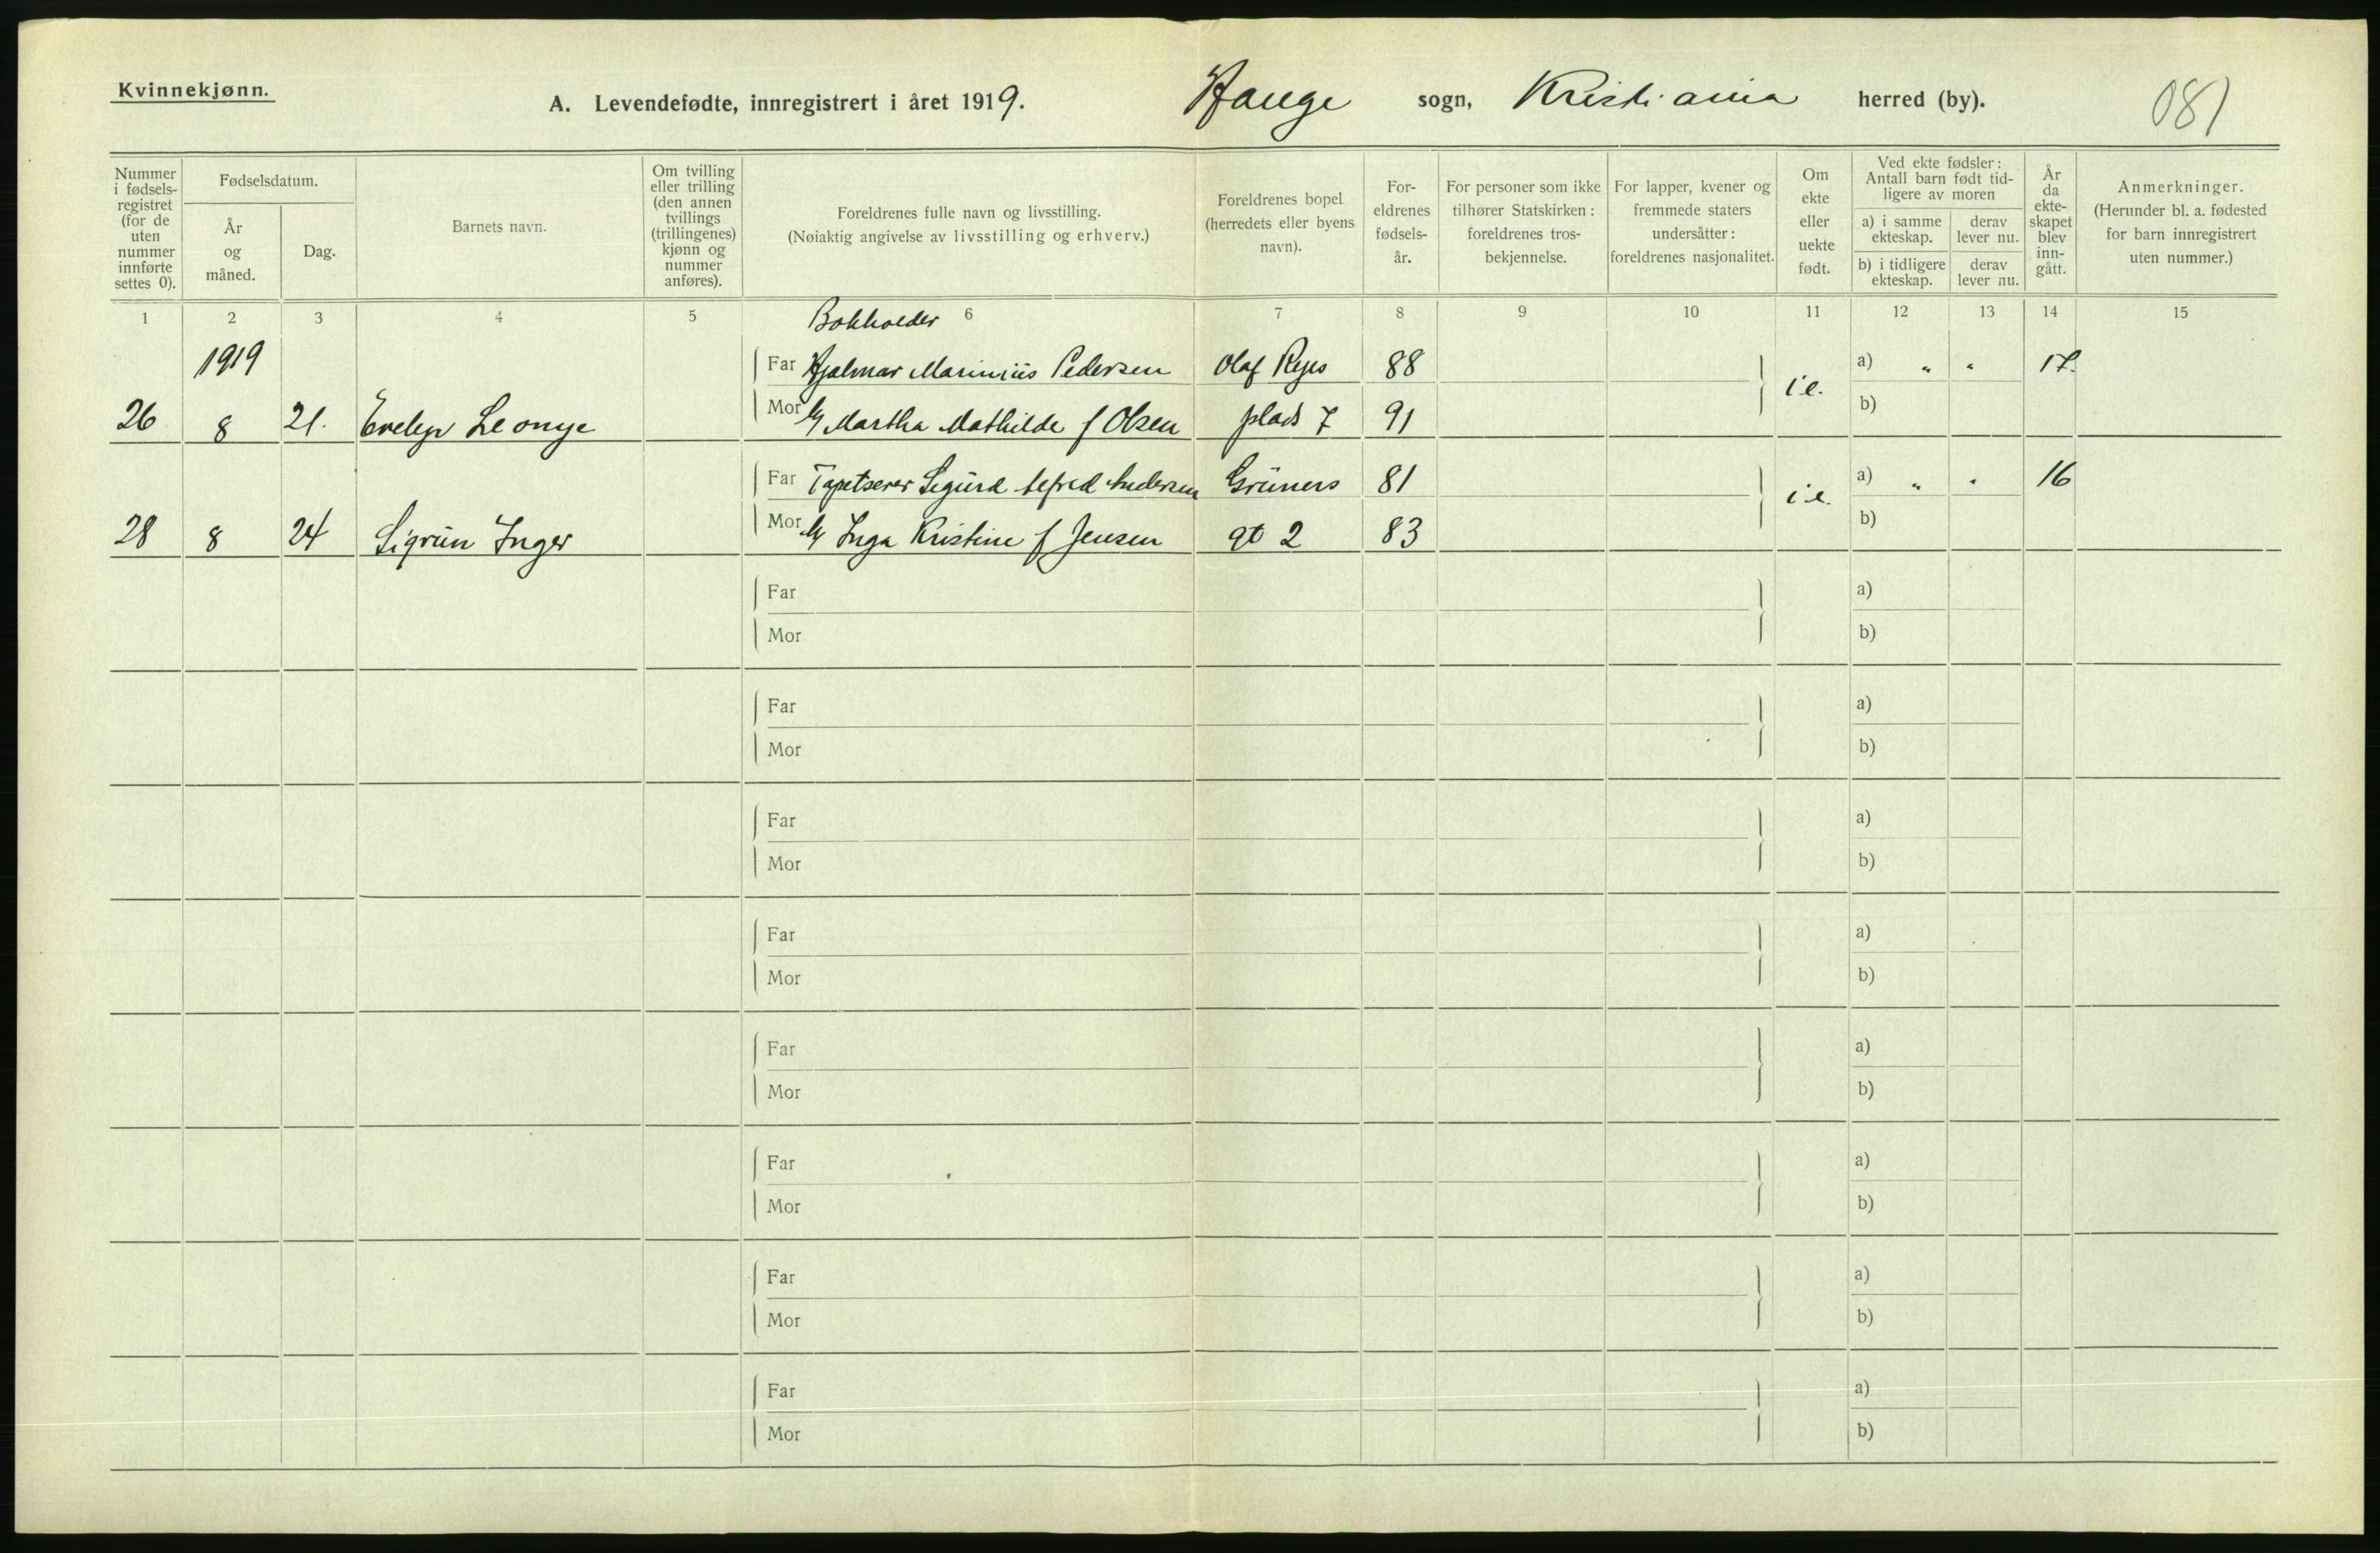 Kvinnekjønn.
A. Levendefødte, innregistrert i året 1919. Hauge sogn, Kristiania herred (by). 081
Nummer i fødsels- registret (for de uten nummer innførte settes 0).
Fødselsdatum.
År og måned.
Dag.
Barnets navn.
Om tvilling eller trilling (den annen tvillings (trillingenes) kjønn og nummer anføres).
Foreldrenes fulle navn og livsstilling.
(Nøiaktig angivelse av livsstilling og erhverv.)
Foreldrenes bopel (herredets eller byens navn).
For- eldrenes fødsels- år.
For personer som ikke tilhører Statskirken: foreldrenes tros- bekjennelse.
For lapper, kvener og fremmede staters undersåtter: foreldrenes nasjonalitet.
Om ekte eller uekte født.
Ved ekte fødsler: Antall barn født tid- ligere av moren
a) i samme ekteskap.
derav lever nu.
b) i tidligere ekteskap.
derav lever nu.
År da ekte- skapet blev inn- gått.
Anmerkninger.
(Herunder bl. a. fødested for barn innregistrert uten nummer.)
1 2 3 4 5 6 7 8 9 10 11 12 13 14 15
Bokholder
1919 Far Hjalmar Marinius Pedersen Olaf Ryes 88 i e. a) " " 17.
26 8 21. Evelyn Leonye Mor Martha Mathilde f Olsen plads 7 91 b)
Far Tapetserer Sigurd Alfred Andersen Grüners 81 i e. a) " " 16
28 8 24 Sigrun Inger Mor Inga Kristine f Jensen gt 2 83 b)
Far a)
Mor b)
Far a)
Mor b)
Far a)
Mor b)
Far a)
Mor b)
Far a)
Mor b)
Far a)
Mor b)
Far a)
Mor b)
Far a)
Mor b)